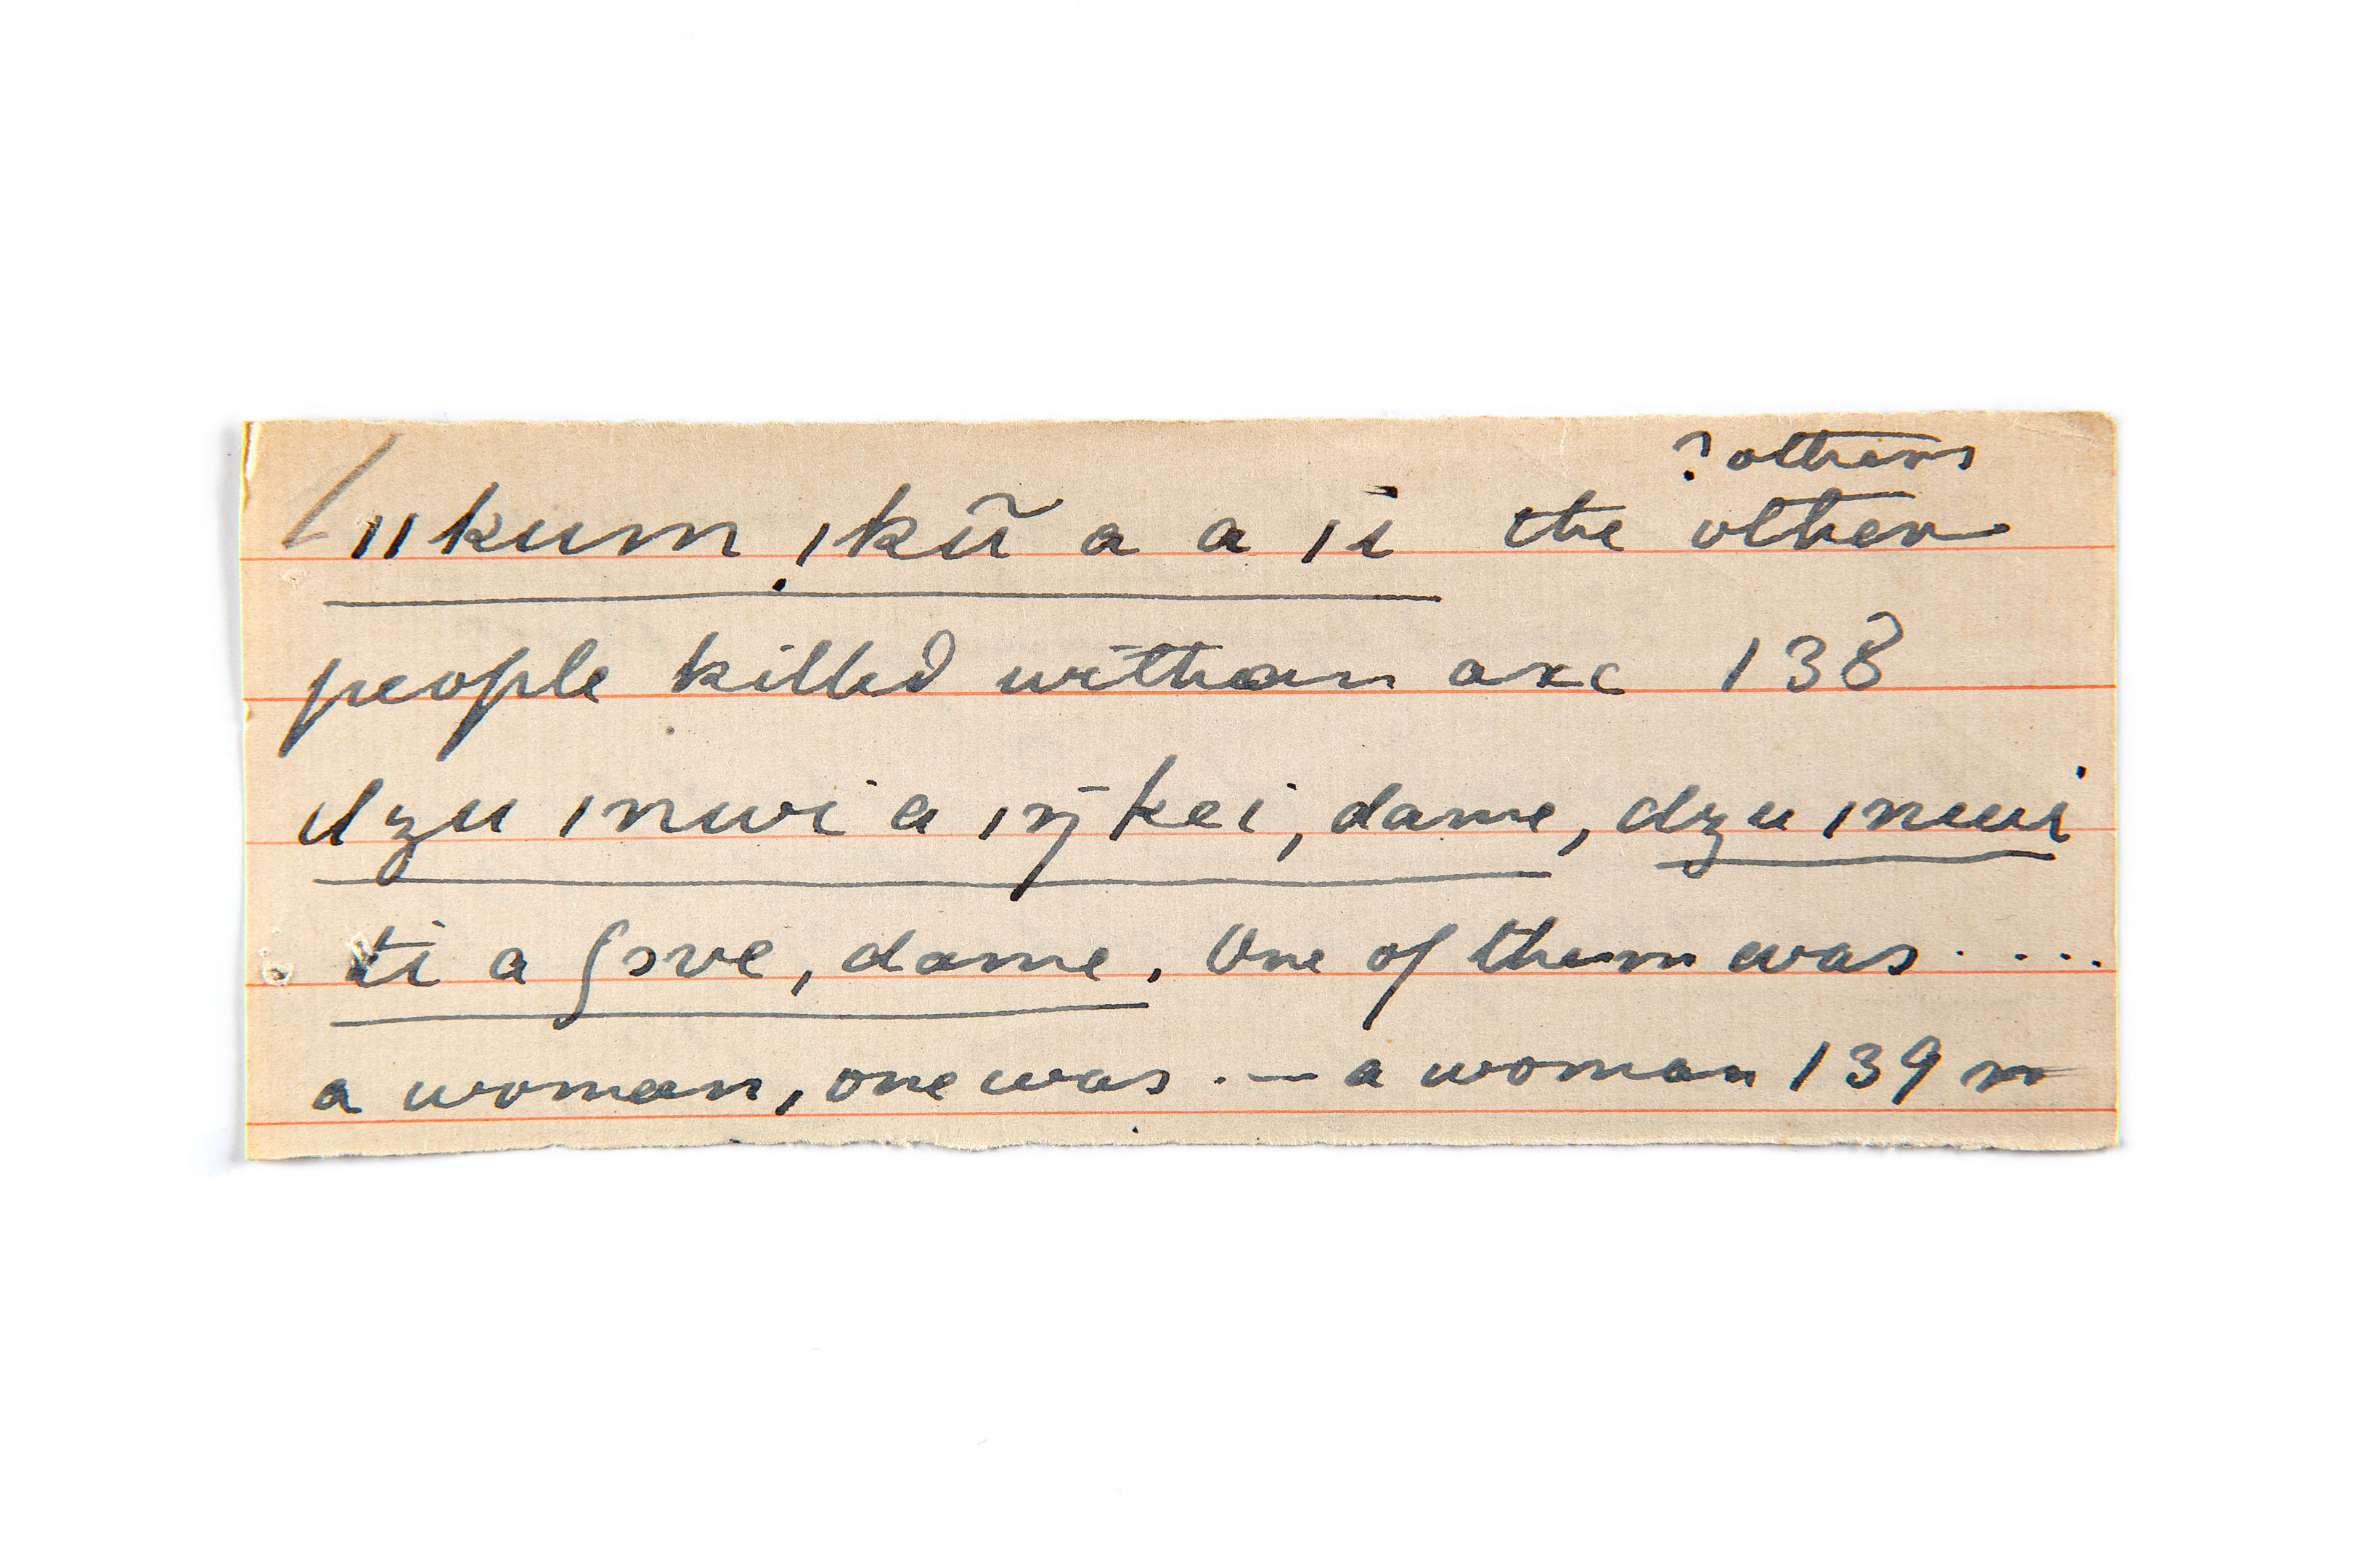 ? others
ıı kum ̩ı kũ a a ı ī the other
people killed with an axe 138
dzu ı nwi a ı ŋ̄ kei, dame, dzu ı nwi
ti a ʃɔve, dame. One of them was ....
a woman, one was .— a woman 139 n